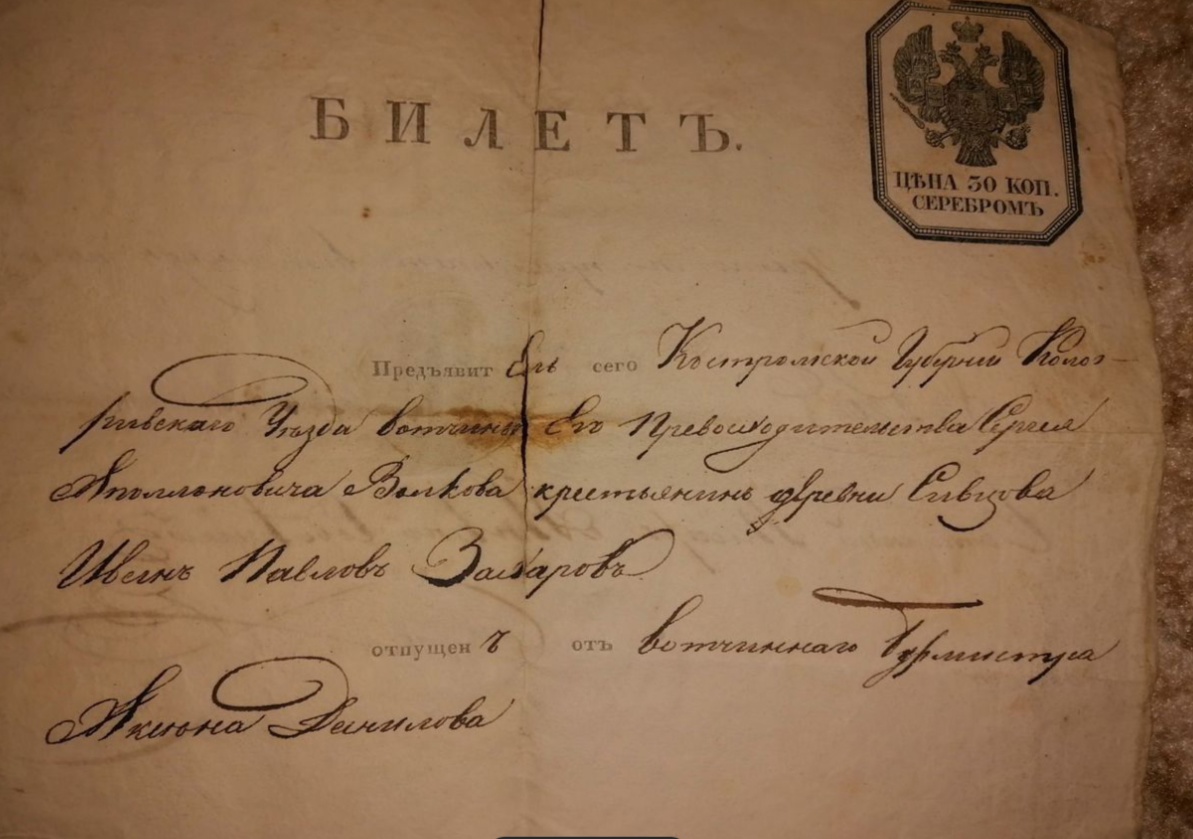 БИЛЕТЪ.
ЦѢНА 30 КОП.
СЕРЕБРОМЪ
Предъявитель сего Костромской Губернии Колог-
ривскаго Уѣзда вотчины Его Превосходительства Сергея
Аполлоновича Волкова крестьянинъ деревни Сивцова
Иванъ Павловъ Захаровъ
отпущенъ отъ вотчиннаго Бурмистра
Аксiона Данилова